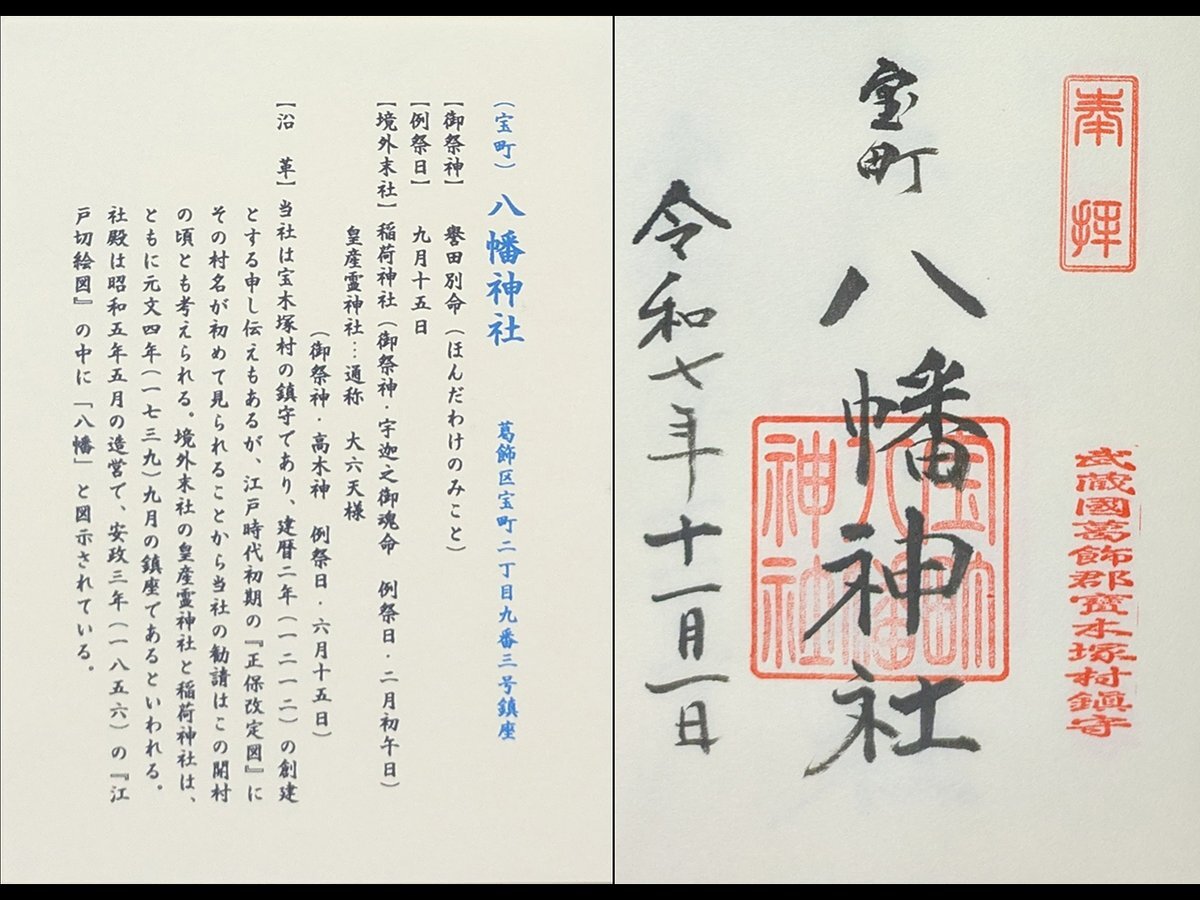 奉拝
武蔵國葛飾郡寶木塚村鎮守
宝町 八幡神社
宝町
八幡
神社
令和七年十一月一日
(宝町) 八幡神社 葛飾区宝町二丁目九番三号鎮座
【御祭神】 誉田別命(ほんだわけのみこと)
【例祭日】 九月十五日
【境外末社】稲荷神社(御祭神・宇迦之御魂命 例祭日・二月初午日)
皇産霊神社…通称 大六天様
(御祭神・高木神 例祭日・六月十五日)
【沿 革】当社は宝木塚村の鎮守であり、建暦二年(一二一二)の創建
とする申し伝えもあるが、江戸時代初期の『正保改定図』に
その村名が初めて見られることから当社の勧請はこの開村
の頃とも考えられる。境外末社の皇産霊神社と稲荷神社は、
ともに元文四年(一七三九)九月の鎮座であるといわれる。
社殿は昭和五年五月の造営で、安政三年(一八五六)の『江
戸切絵図』の中に「八幡」と図示されている。